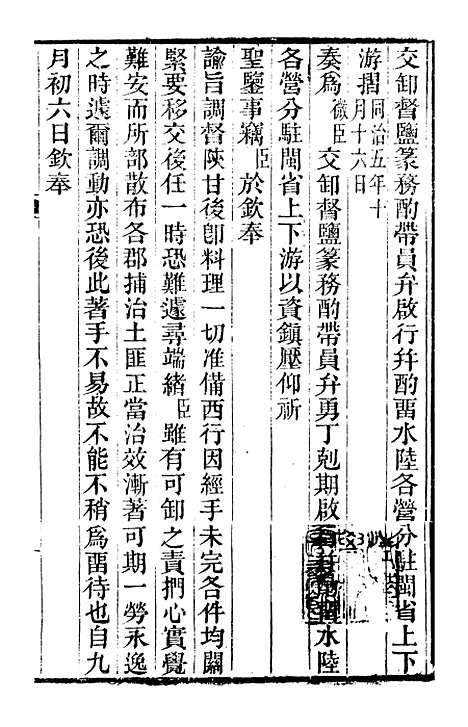 交卸督鹽篆務酌帶員弁啟行幷酌畱水陸各營分駐閩省上下
游摺同治五年十月十六日
奏爲微臣交卸督鹽篆務酌帶員弁勇丁剋期啟行幷酌畱水陸
各營分駐閩省上下游以資鎭壓仰祈
聖鑒事竊臣於欽奉
諭旨調督陝甘後卽料理一切准備西行因經手未完各件均關
緊要移交後任一時恐難遽尋端緒臣雖有可卸之責捫心實覺
難安而所部散布各郡捕治土匪正當治效漸著可期一勞永逸
之時遽爾調動亦恐後此著手不易故不能不稍爲畱待也自九
月初六日欽奉